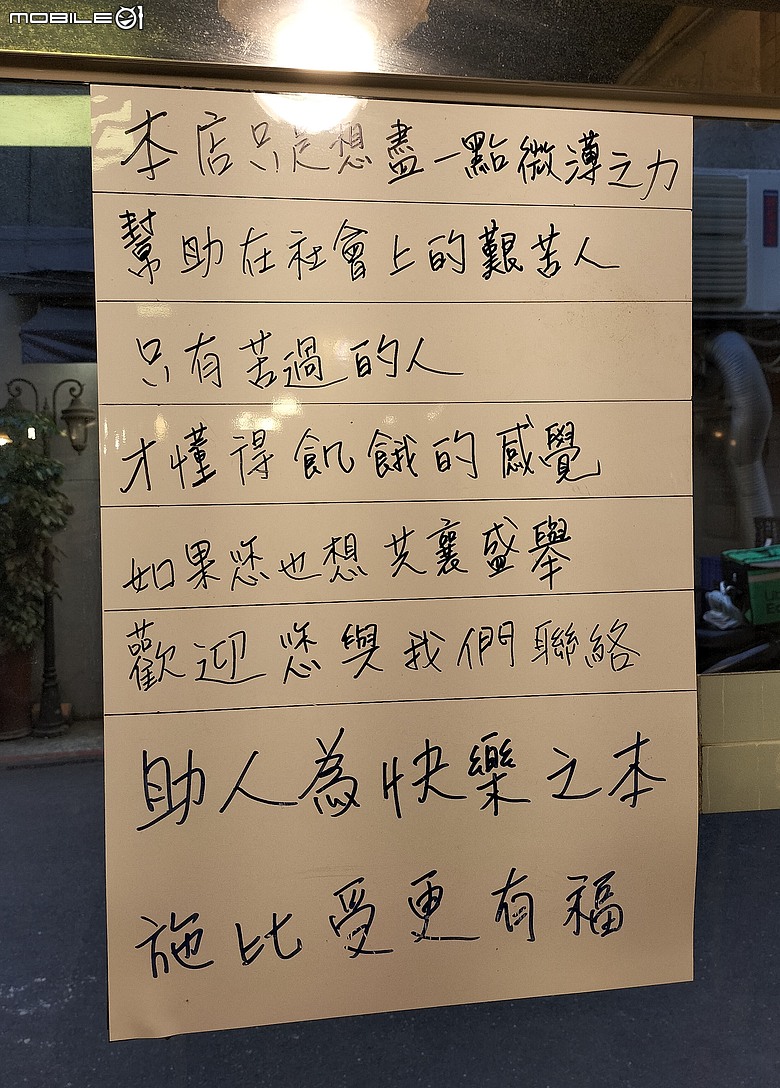 MOBILE01
本店只是想盡一點微薄之力
幫助在社會上的艱苦人
只有苦過的人
才懂得飢餓的感覺
如果您也想共襄盛舉
歡迎您與我們聯絡
助人為快樂之本
施比受更有福